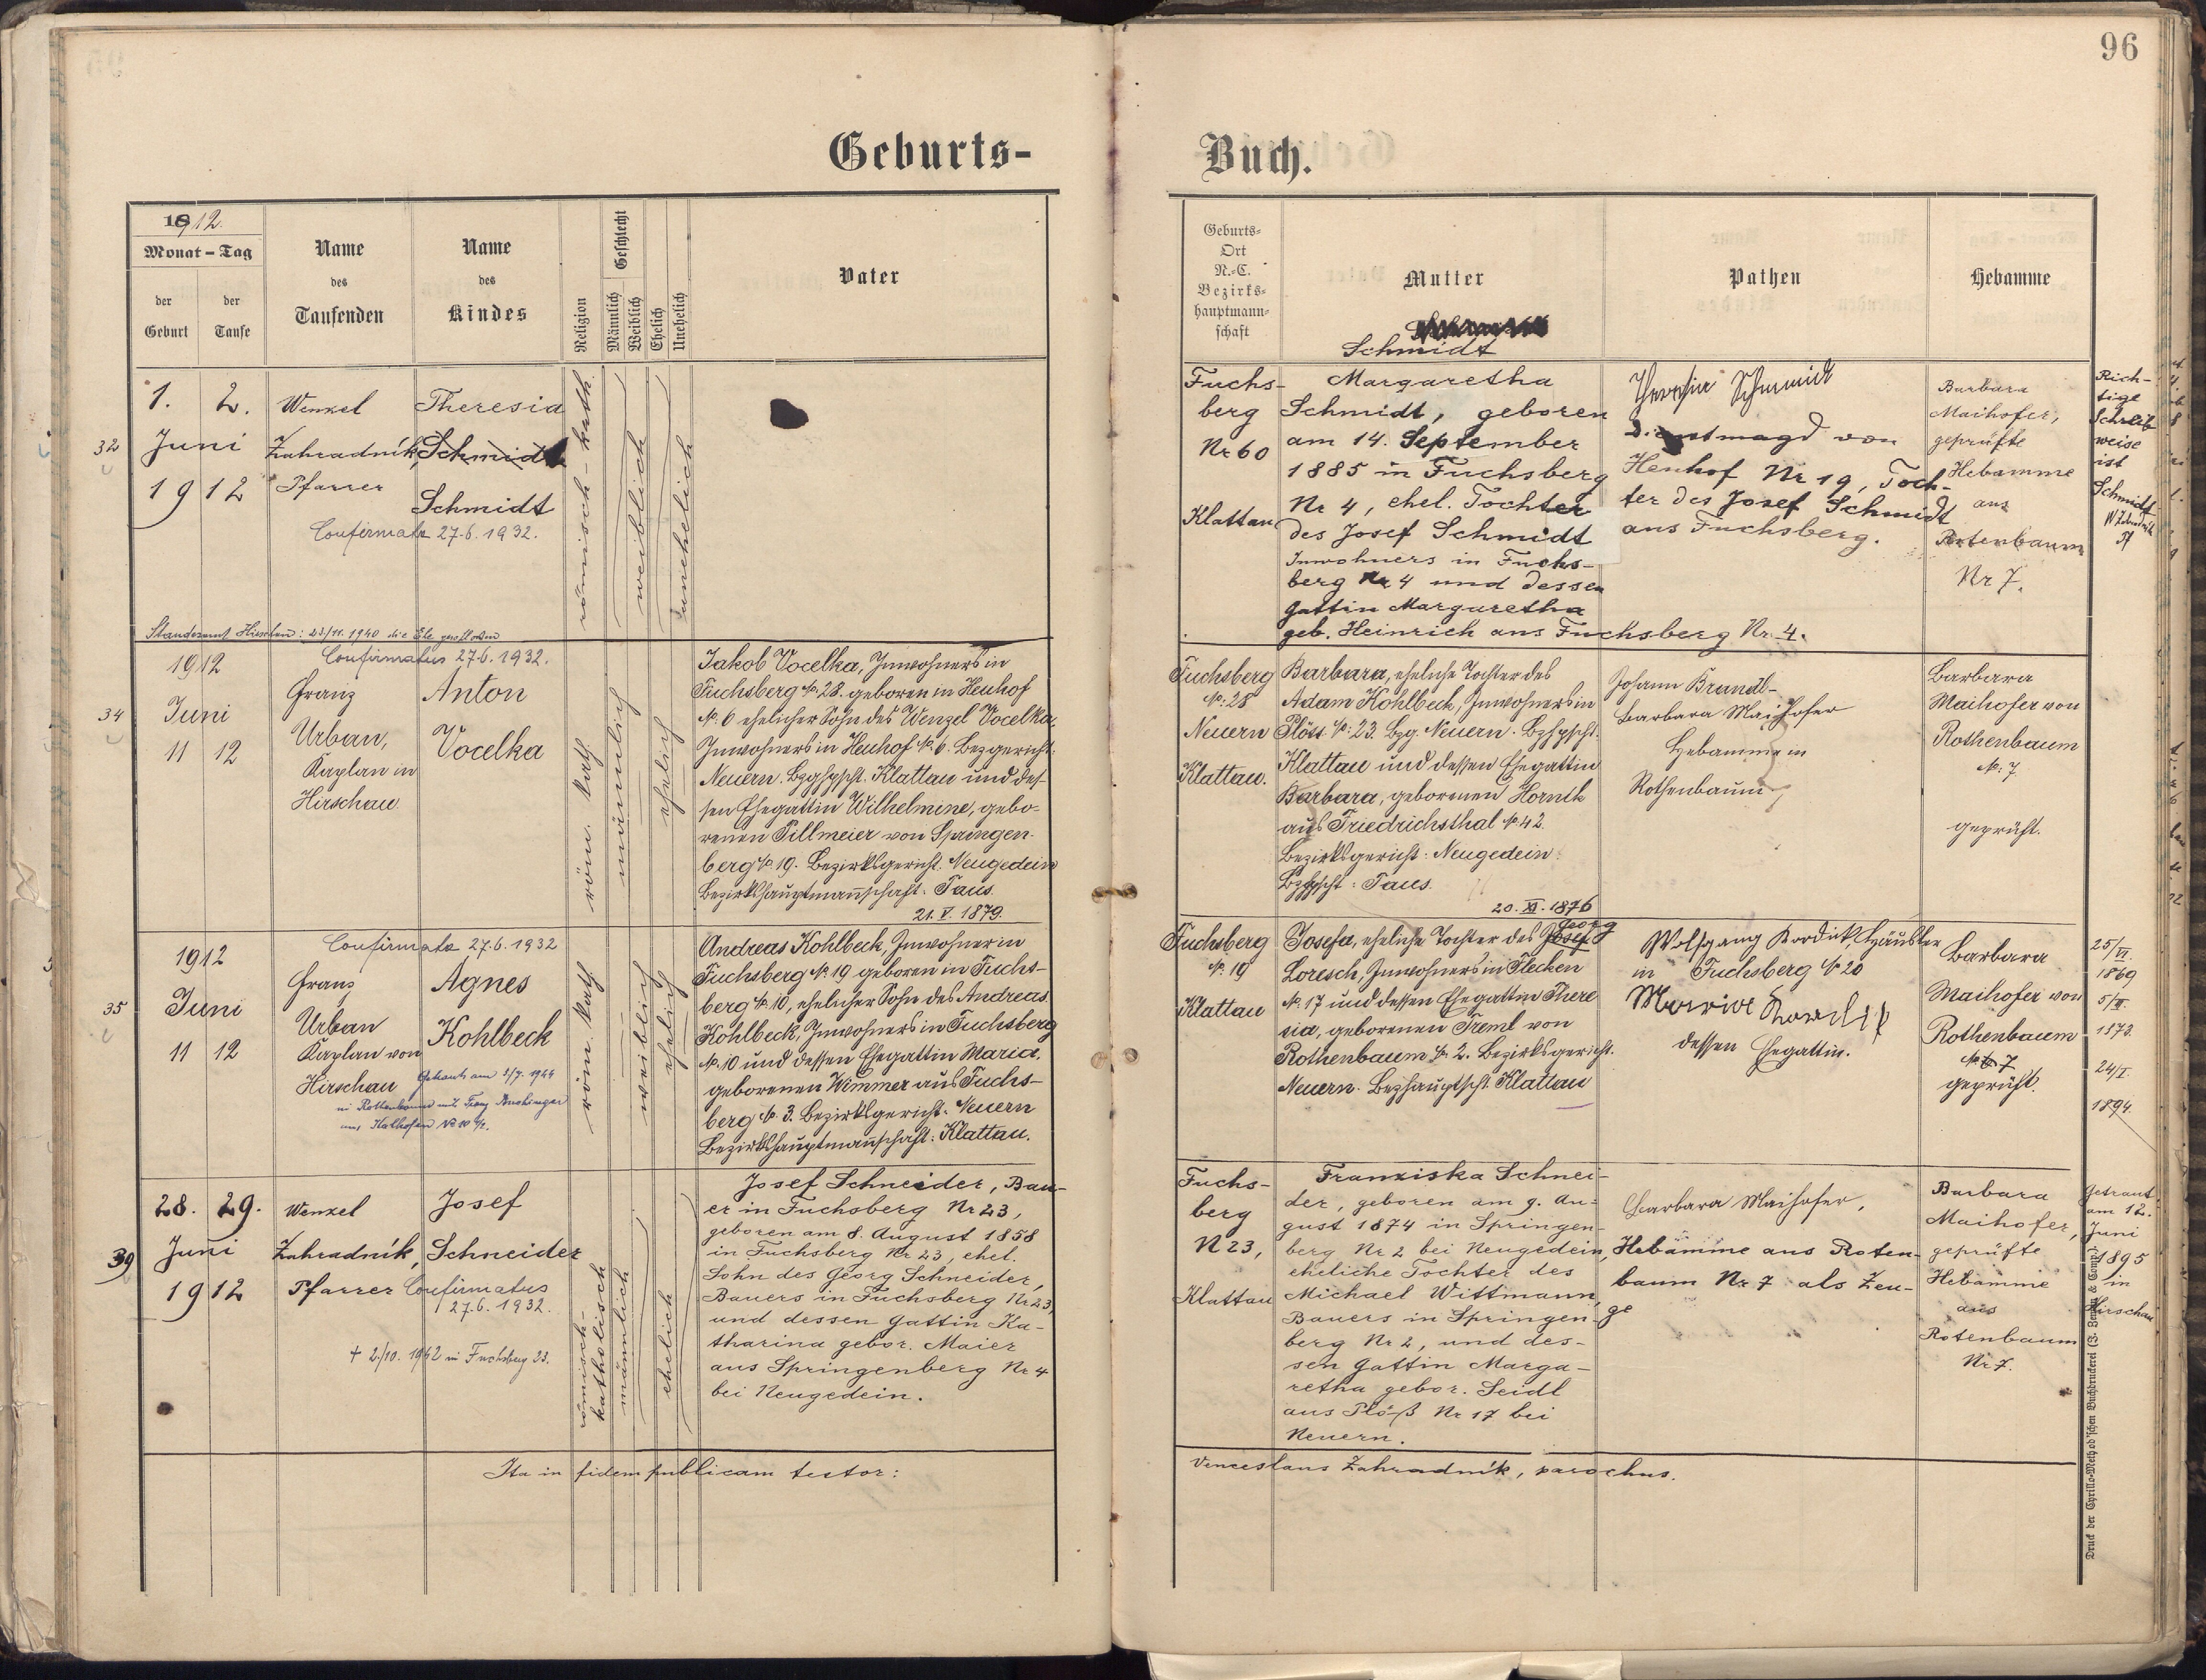 96
Geburts-
Buch.
1912.
Monat - Tag
der Geburt
der Taufe
Name
des
Taufenden
Name
des
Kindes
Religion
Geschlecht
Männlich
Weiblich
Ehelich
Unehelich
Vater
Geburts-
Ort
N.-C.
Bezirks-
hauptmann-
schaft
Mutter
Pathen
Hebamme
32
1. 2.
Juni
1912
Wenzel
Zahradník,
Pfarrer
Theresia
Schmidt
Schmidt
Confirmata 27.6.1932.
römisch-kath.
weiblich
unehelich
Standesamt Hirschau: 23/11.1940 die Ehe geschlossen
Fuchs-
berg
Nr 60
Klattau
Schmidt
Margaretha
Schmidt, geboren
am 14. September
1885 in Fuchsberg
Nr 4, ehel. Tochter
des Josef Schmidt
Inwohners in Fuchs-
berg Nr 4 und dessen
Gattin Margaretha
geb. Heinrich aus Fuchsberg Nr. 4.
Theresia Schmidt
Dienstmagd von
Heuhof Nr 19, Toch-
ter des Josef Schmidt
aus Fuchsberg.
Barbara
Maihofer,
geprüfte
Hebamme
aus
Rotenbaum
Nr 7.
Rich-
tige
Schreib
weise
ist
Schmidt
34
1912
Juni
11 12
Confirmatus 27.6.1932.
Franz
Urban,
Kaplan in
Hirschau.
Anton
Vocelka
röm. kath
männlich
ehelich
Jakob Vocelka, Inwohners in
Fuchsberg № 28. geboren in Heuhof
№. 6 ehelicher Sohn des Wenzel Vocelka,
Inwohners in Heuhof № 6. Bezgericht.
Neuern. Bzghpscht. Klattau und des-
sen Ehegattin Wilhelmine, gebo-
renen Pillmeier von Springen-
berg № 19. Bezirksgericht. Neugedein
Bezirkshauptmannschaft: Taus.
21. V. 1879.
Fuchsberg
№: 28
Neuern
Klattau.
Barbara, eheliche Tochter des
Adam Kohlbeck, Inwohners in
Plöss №: 23. Bzg. Neuern. Bzhpscht.
Klattau und dessen Ehegattin
Barbara, geborenen Hornik
aus Friedrichsthal № 42.
Bezirksgericht: Neugedein.
Bzhpscht: Taus.
20. XI. 1876
Johann Brandl-
Barbara Maihofer
Hebamme in
Rothenbaum
Barbara
Maihofer von
Rothenbaum
№: 7
geprüft.
35
1912
Juni
11 12
Confirmata 27.6.1932
Franz
Urban
Kaplan von
Hirschau
Agnes
Kohlbeck
Getraut am 1/7. 1944
in Rothenbaum mit Franz
aus Kalhofen № 10
röm. kath
weiblich
ehelich
Andreas Kohlbeck, Inwohner in
Fuchsberg № 19 geboren in Fuchs-
berg № 10, ehelicher Sohn des Andreas
Kohlbeck, Inwohners in Fuchsberg
№. 10 und dessen Ehegattin Maria,
geborenen Wimmer aus Fuchs-
berg № 3. Bezirksgericht. Neuern
Bezirkshauptmannschaft: Klattau.
Fuchsberg
№. 19
Klattau
Georg
Josefa, eheliche Tochter des Josef
Loresch, Inwohners in Flecken
№. 17 und dessen Ehegattin There
sia, geborenen Treml von
Rothenbaum № 2. Bezirksgericht.
Neuern. Bezhauptscht. Klattau
Wolfgang Kordik, Häusler
in Fuchsberg № 20
Maria Kordik
dessen Ehegattin.
Barbara
Maihofer von
Rothenbaum
№ 7
geprüft.
25/VI.
1869
5/II.
1873.
24/I.
1894.
39
28. 29.
Juni
1912
Wenzel
Zahradník,
Pfarrer
Josef
Schneider
Confirmatus
27.6.1932.
+ 2./10. 1942 in Fuchsberg 23.
römisch-
katholisch
männlich
ehelich
Josef Schneider, Bau-
er in Fuchsberg Nr 23,
geboren am 8. August 1858
in Fuchsberg Nr 23, ehel.
Sohn des Georg Schneider,
Bauers in Fuchsberg Nr 23,
und dessen Gattin Ka-
tharina gebor. Maier
aus Springenberg Nr 4
bei Neugedein.
Fuchs-
berg
N 23,
Klattau
Franziska Schnei-
der, geboren am 9. Au-
gust 1874 in Springen-
berg Nr 2 bei Neugedein,
eheliche Tochter des
Michael Wittmann,
Bauers in Springen-
berg Nr 2, und des-
sen Gattin Marga-
retha gebor. Seidl
aus Plöß Nr 17 bei
Neuern.
Barbara Maihofer,
Hebamme aus Roten-
baum Nr 7 als Zeu-
ge
Barbara
Maihofer,
geprüfte
Hebamme
aus
Rotenbaum
Nr 7.
Getraut
am 12.
Juni
1895
in
Hirschau
Ita in fidem publicam testor:
Venceslaus Zahradník, parochus.
Druck der Cyrillo-Method'schen Buchdruckerei